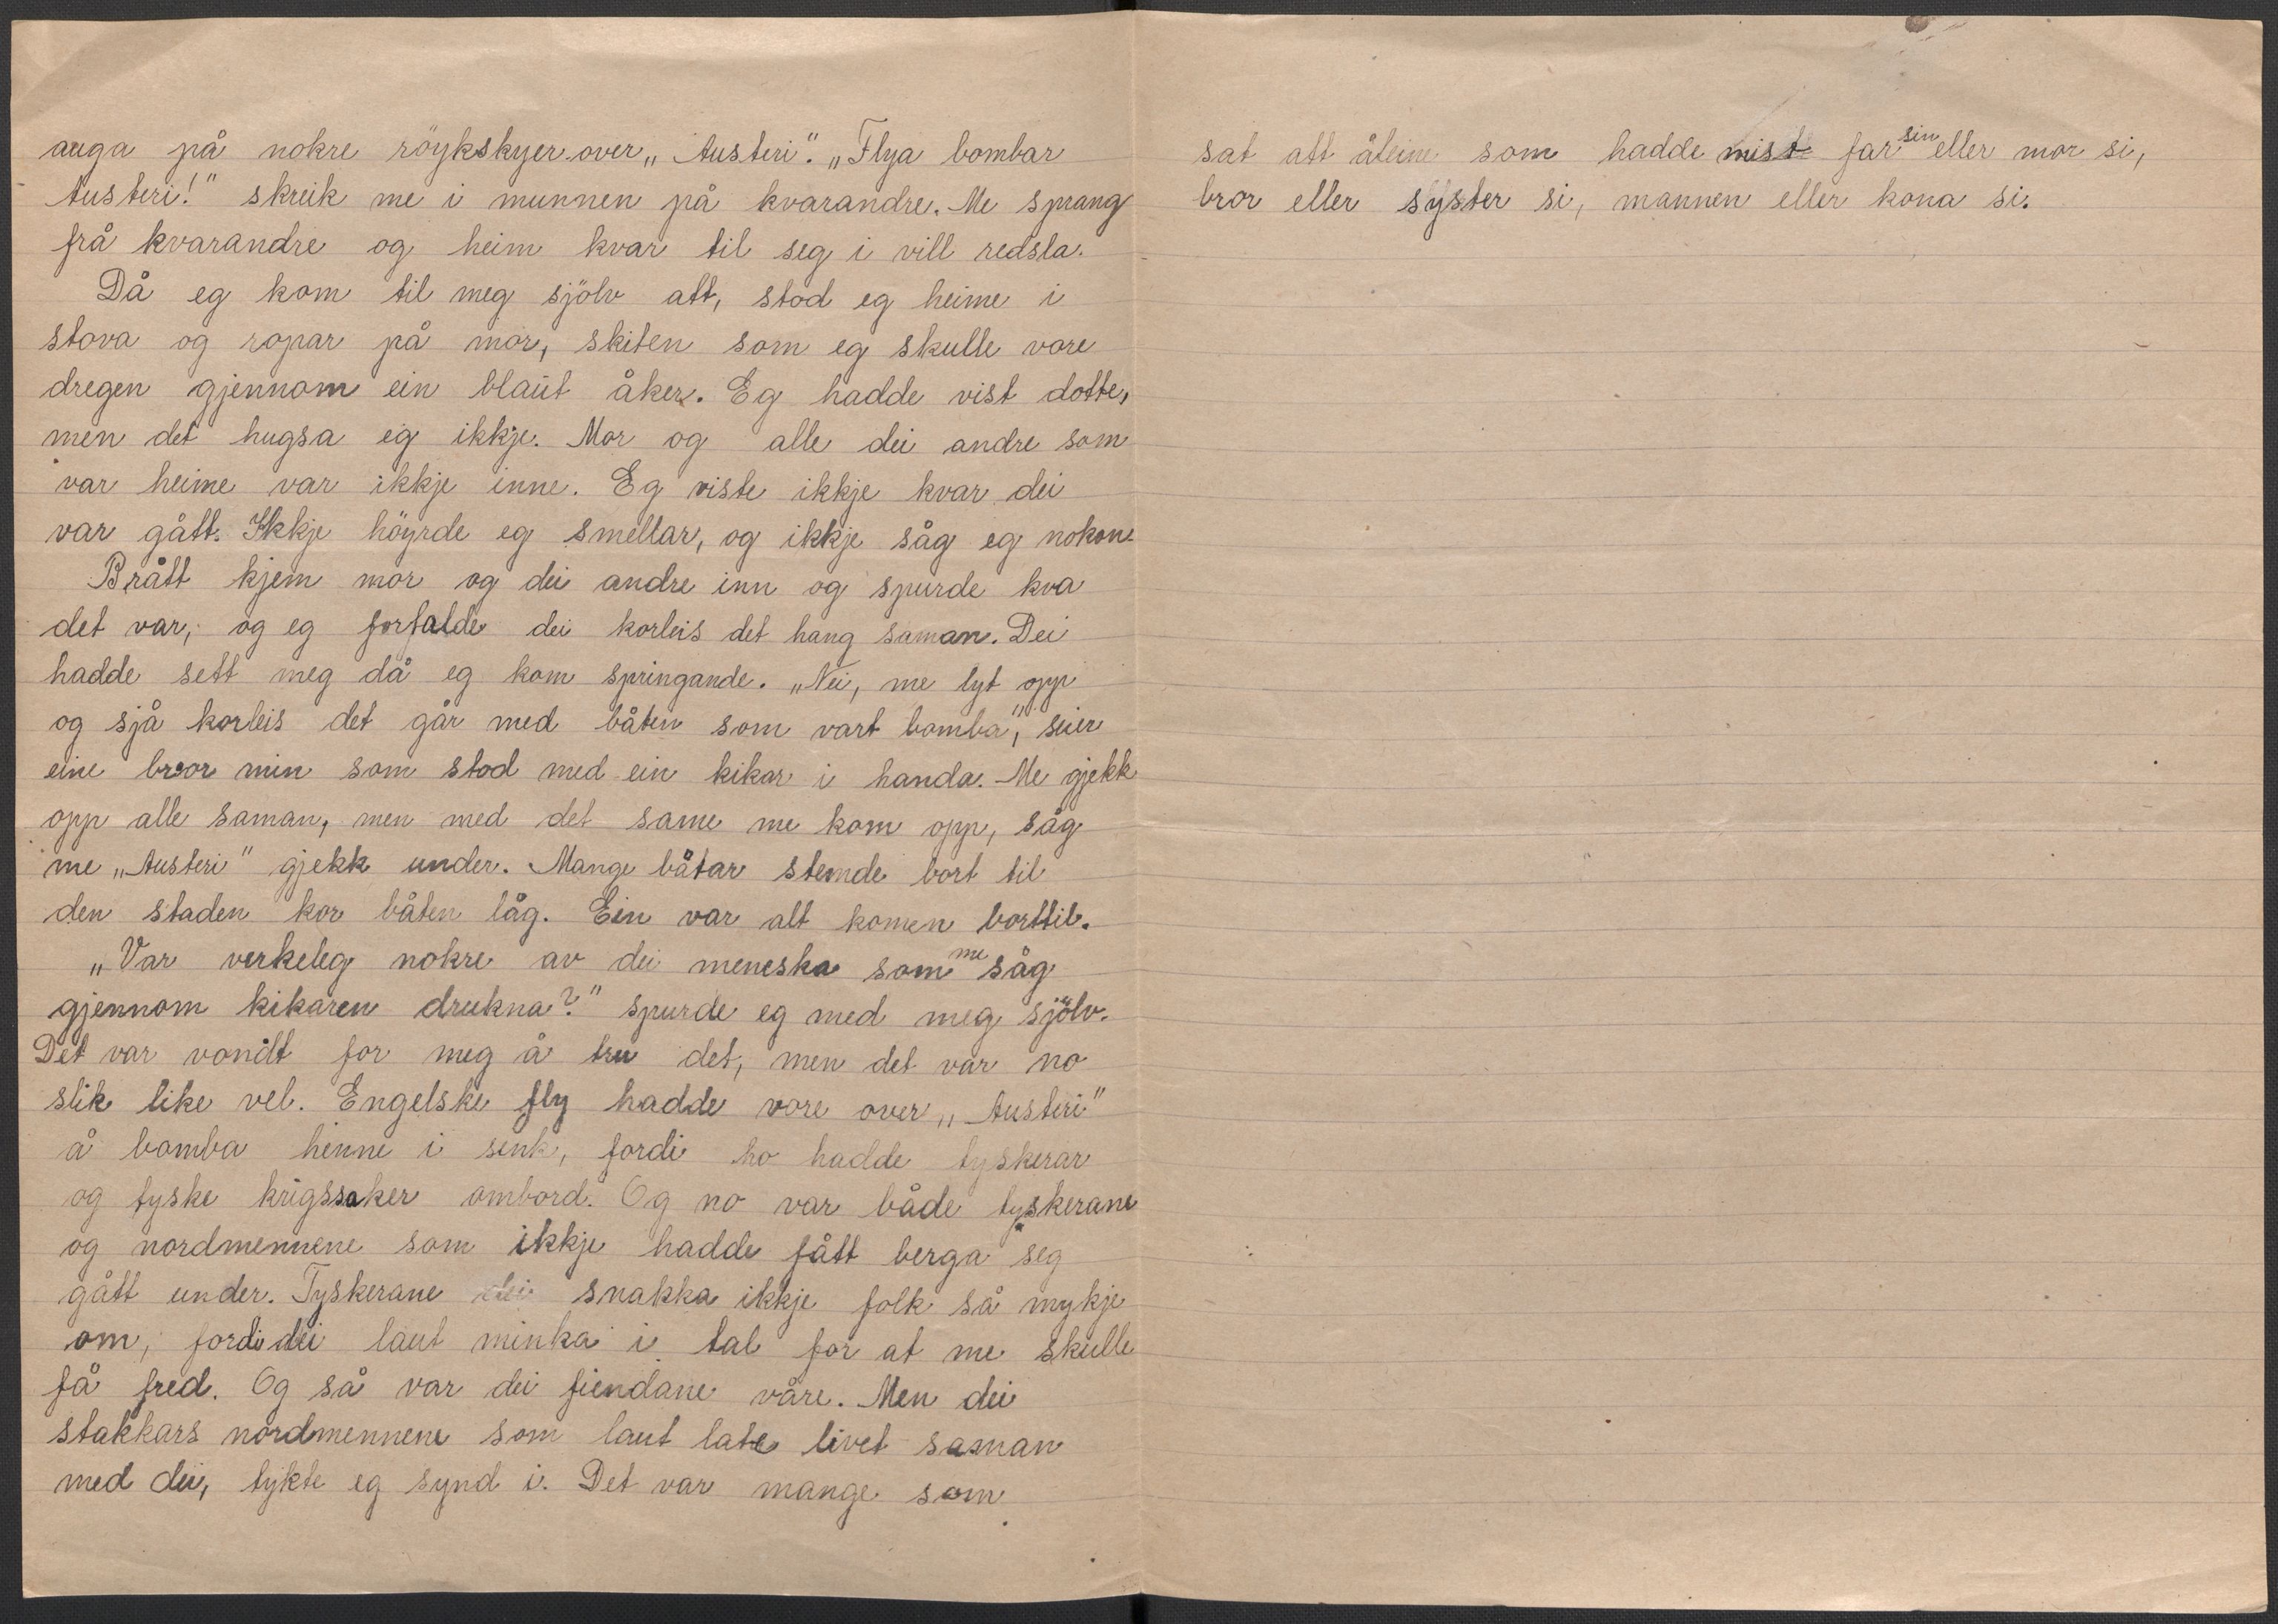 auga på nokre röykskyer over „Austeri". „Flya bombar
Austeri!" skreik me i munnen på kvarandre. Me sprang
frå kvarandre og heim kvar til seg i vill redsla.
Då eg kom til meg sjölv att, stod eg heime i
stova og ropar på mor, skiten som eg skulle vore
dregen gjennom ein blaut åker. Eg hadde vist dotte,
men det hugsa eg ikkje. Mor og alle dei andre som
var heime var ikkje inne. Eg viste ikkje kvar dei
var gått. Ikkje höyrde eg smellar, og ikkje såg eg nokon
Brått kjem mor og dei andre inn og spurde kva
det var, og eg forfalde dei korleis det hang saman. Dei
hadde sett meg då eg kom springande. „Nei, me lyt opp
og sjå korleis det går med båten som vart bomba", seier
eine bror min som stod med ein kikar i handa. Me gjekk
opp alle saman, men med det same me kom opp, såg
me „Austeri" gjekk under. Mange båtar stemde bort til
den staden kor båten låg. Ein var alt komen borttil.
„Var verkeleg nokre av dei meneska som me såg
gjennom kikaren drukna?" spurde eg med meg sjölv.
Det var vondt for meg å tru det, men det var no
slik like vel. Engelske fly hadde vore over „Austeri"
å bomba henne i senk, fordi ho hadde tyskerar
og tyske krigssaker ombord. Og no var både tyskerane
og nordmennene som ikkje hadde fått berga seg
gått under. Tyskerane dei snakka ikkje folk så mykje
om, fordi dei laut minka i tal for at me skulle
få fred. Og så var dei fiendane våre. Men dei
stakkars nordmennene som laut late livet saman
med dei, tykte eg synd i. Det var mange som
sat att åleine som hadde mist far sin eller mor si,
bror eller syster si, mannen eller kona si.